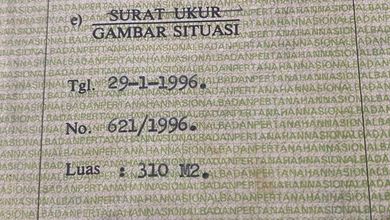 e) SURAT UKUR
GAMBAR SITUASI
Tgl. 29-1-1996.
No. 621/1996.
Luas : 310 M2.